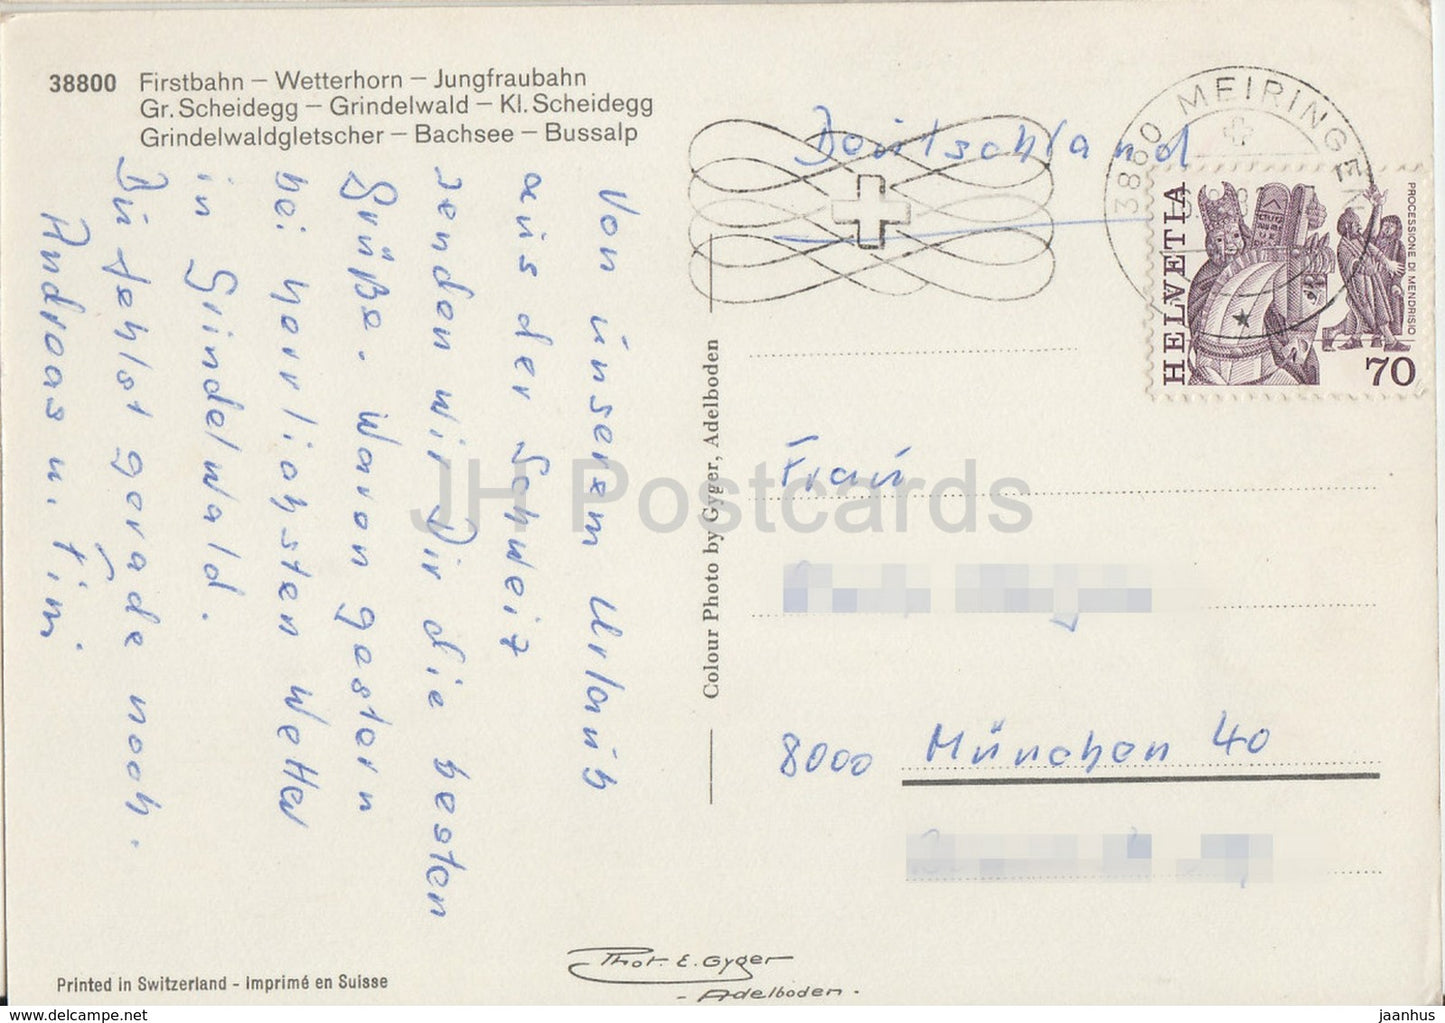 38800 Firstbahn – Wetterhorn – Jungfraubahn
Gr. Scheidegg – Grindelwald – Kl. Scheidegg
Grindelwaldgletscher – Bachsee – Bussalp
Von unserem Urlaub
aus der Schweiz
senden wir Dir die besten
Grüße. Waren gestern
bei herrlichsten Wetter
in Grindelwald.
Du fehlst gerade noch.
Andreas u. Tim.
Colour Photo by Gyger, Adelboden
Deutschland
3860 MEIRINGEN
HELVETIA
PROCESSIONE DI MENDRISIO
70
Frau
8000 München 40
Printed in Switzerland - Imprimé en Suisse
Phot. E. Gyger
- Adelboden -
JH Postcards
www.delcampe.net
jaanhus